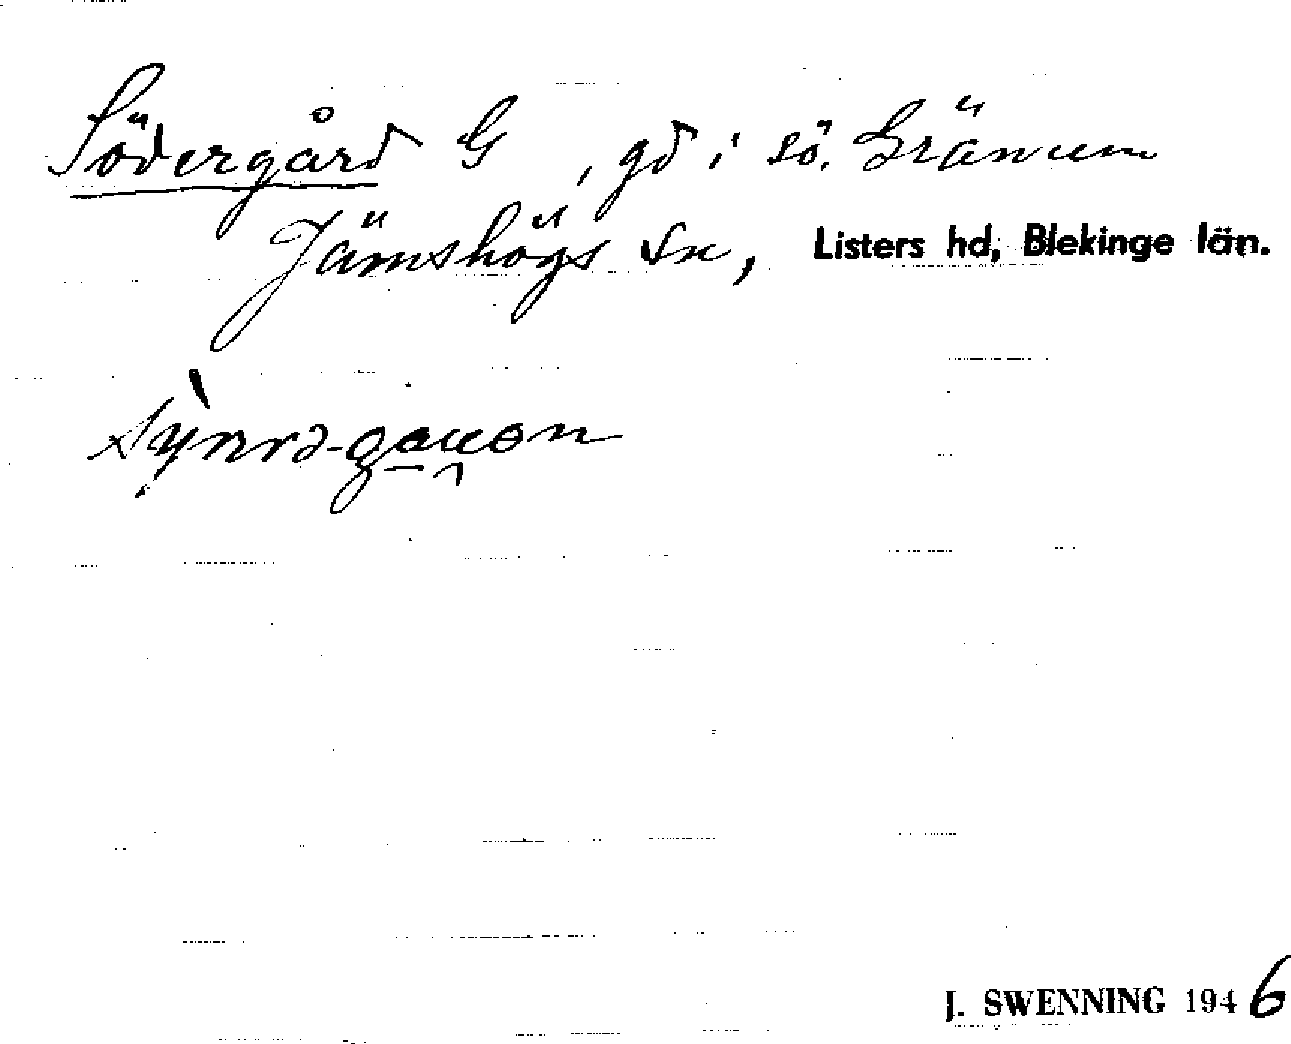 Södergård G , gd i sö. Gränum
Jämshögs sn, Listers hd, Blekinge län.
J. SWENNING 1946